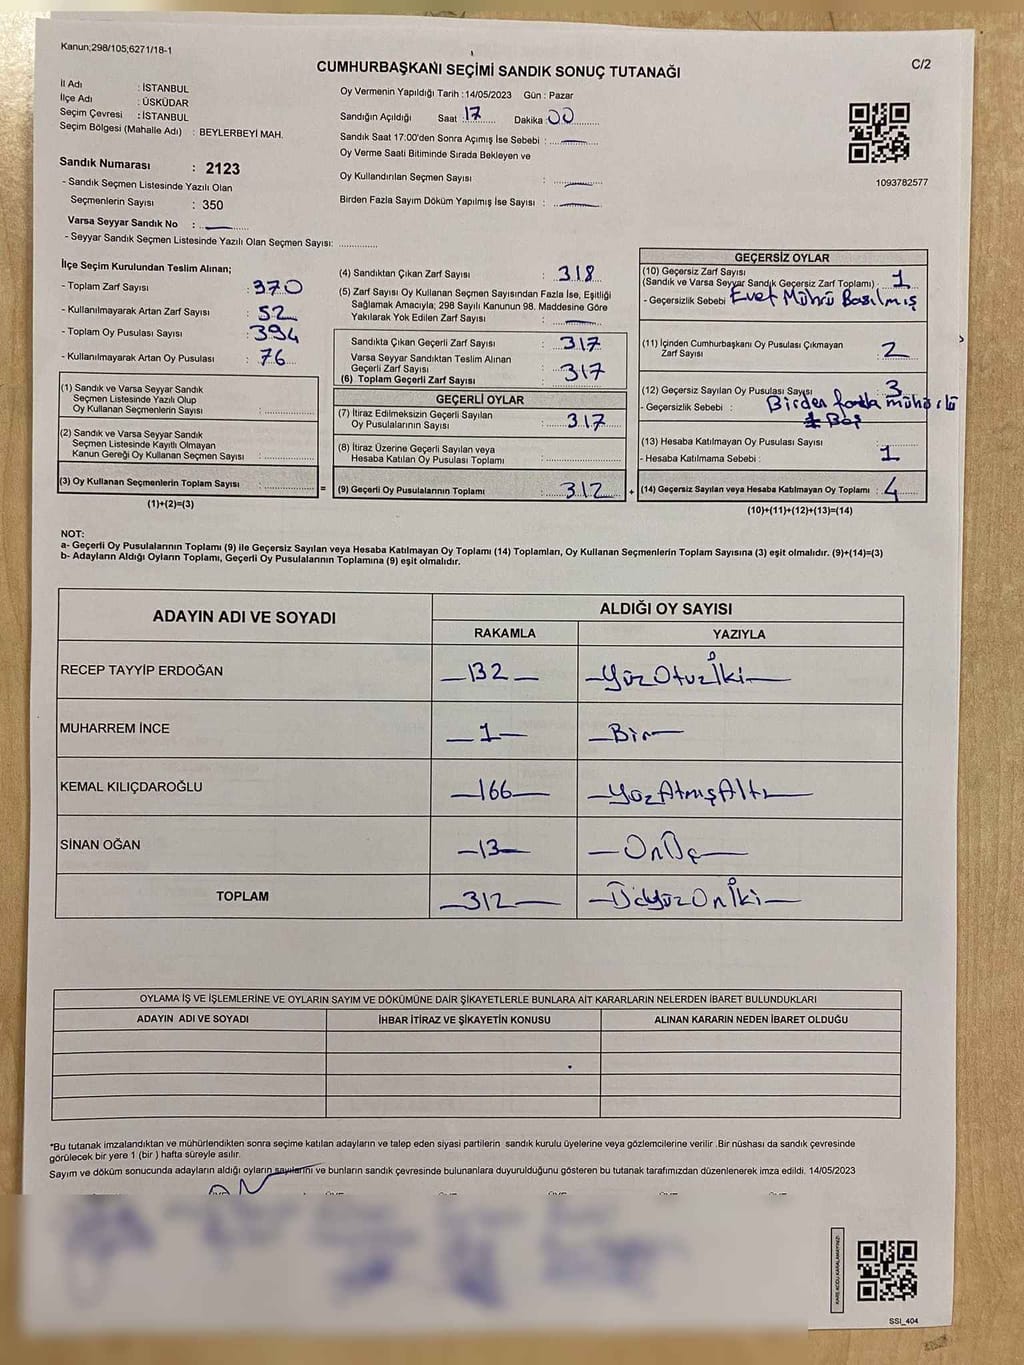 Kanun;298/105;6271/18-1
C/2
CUMHURBAŞKANI SEÇİMİ SANDIK SONUÇ TUTANAĞI
İl Adı : İSTANBUL
İlçe Adı : ÜSKÜDAR
Seçim Çevresi : İSTANBUL
Seçim Bölgesi (Mahalle Adı) : BEYLERBEYİ MAH.
Sandık Numarası : 2123
- Sandık Seçmen Listesinde Yazılı Olan
Seçmenlerin Sayısı : 350
Varsa Seyyar Sandık No :
- Seyyar Sandık Seçmen Listesinde Yazılı Olan Seçmen Sayısı: ..............
Oy Vermenin Yapıldığı Tarih :14/05/2023 Gün : Pazar
Sandığın Açıldığı Saat 17 Dakika :00
Sandık Saat 17:00'den Sonra Açımış İse Sebebi :
Oy Verme Saati Bitiminde Sırada Bekleyen ve
Oy Kullandırılan Seçmen Sayısı :
Birden Fazla Sayım Döküm Yapılmış İse Sayısı :
1093782577
İlçe Seçim Kurulundan Teslim Alınan;
- Toplam Zarf Sayısı : 370
- Kullanılmayarak Artan Zarf Sayısı : 52
- Toplam Oy Pusulası Sayısı : 394
- Kullanılmayarak Artan Oy Pusulası : 76
(1) Sandık ve Varsa Seyyar Sandık
Seçmen Listesinde Yazılı Olup
Oy Kullanan Seçmenlerin Sayısı :
(2) Sandık ve Varsa Seyyar Sandık
Seçmen Listesinde Kayıtlı Olmayan
Kanun Gereği Oy Kullanan Seçmen Sayısı :
(3) Oy Kullanan Seçmenlerin Toplam Sayısı :
(1)+(2)=(3)
=
(4) Sandıktan Çıkan Zarf Sayısı : 318
(5) Zarf Sayısı Oy Kullanan Seçmen Sayısından Fazla İse, Eşitliği
Sağlamak Amacıyla; 298 Sayılı Kanunun 98. Maddesine Göre
Yakılarak Yok Edilen Zarf Sayısı :
Sandıkta Çıkan Geçerli Zarf Sayısı : 317
Varsa Seyyar Sandıktan Teslim Alınan
Geçerli Zarf Sayısı :
(6) Toplam Geçerli Zarf Sayısı : 317
GEÇERLİ OYLAR
(7) İtiraz Edilmeksizin Geçerli Sayılan
Oy Pusulalarının Sayısı : 317
(8) İtiraz Üzerine Geçerli Sayılan veya
Hesaba Katılan Oy Pusulası Toplamı :
(9) Geçerli Oy Pusulalarının Toplamı : 312
+
GEÇERSİZ OYLAR
(10) Geçersiz Zarf Sayısı
(Sandık ve Varsa Seyyar Sandık Geçersiz Zarf Toplamı) : 1
- Geçersizlik Sebebi : Evet Mührü Basılmış
(11) İçinden Cumhurbaşkanı Oy Pusulası Çıkmayan
Zarf Sayısı : 2
(12) Geçersiz Sayılan Oy Pusulası Sayısı : 3
- Geçersizlik Sebebi : Birden fazla mühürlü
Boş
(13) Hesaba Katılmayan Oy Pusulası Sayısı
- Hesaba Katılmama Sebebi : 1
(14) Geçersiz Sayılan veya Hesaba Katılmayan Oy Toplamı : 4
(10)+(11)+(12)+(13)=(14)
NOT:
a- Geçerli Oy Pusulalarının Toplamı (9) ile Geçersiz Sayılan veya Hesaba Katılmayan Oy Toplamı (14) Toplamları, Oy Kullanan Seçmenlerin Toplam Sayısına (3) eşit olmalıdır. (9)+(14)=(3)
b- Adayların Aldığı Oyların Toplamı, Geçerli Oy Pusulalarının Toplamına (9) eşit olmalıdır.
ADAYIN ADI VE SOYADI
ALDIĞI OY SAYISI
RAKAMLA YAZIYLA
RECEP TAYYİP ERDOĞAN 132 YüzOtuzİki
MUHARREM İNCE 1 Bir
KEMAL KILIÇDAROĞLU 166 YüzAtmışAltı
SİNAN OĞAN 13 OnÜç
TOPLAM 312 ÜçYüzOnİki
OYLAMA İŞ VE İŞLEMLERİNE VE OYLARIN SAYIM VE DÖKÜMÜNE DAİR ŞİKAYETLERLE BUNLARA AİT KARARLARIN NELERDEN İBARET BULUNDUKLARI
ADAYIN ADI VE SOYADI İHBAR İTİRAZ VE ŞİKAYETİN KONUSU ALINAN KARARIN NEDEN İBARET OLDUĞU
*Bu tutanak imzalandıktan ve mühürlendikten sonra seçime katılan adayların ve talep eden siyasi partilerin sandık kurulu üyelerine veya gözlemcilerine verilir .Bir nüshası da sandık çevresinde
görülecek bir yere 1 (bir ) hafta süreyle asılır.
Sayım ve döküm sonucunda adayların aldığı oyların sayılarını ve bunların sandık çevresinde bulunanlara duyurulduğunu gösteren bu tutanak tarafımızdan düzenlenerek imza edildi. 14/05/2023
KARE KODU KARALAMAYINIZ!
SSI_404